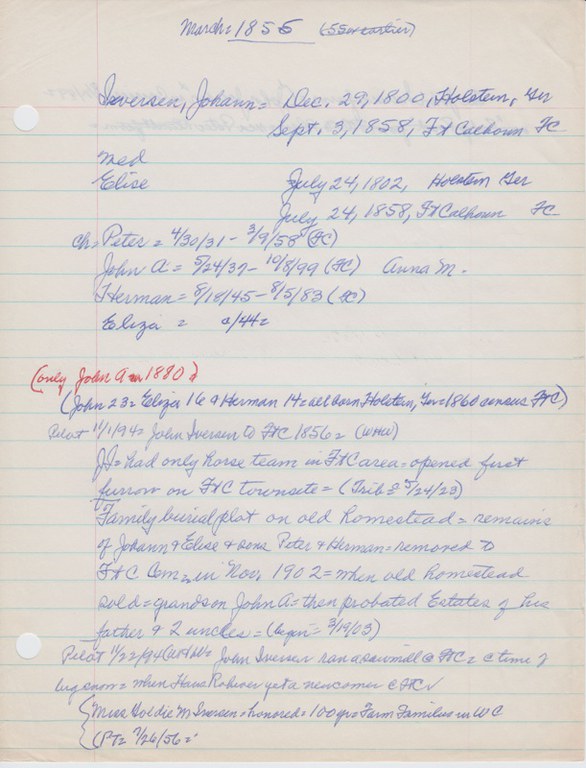 March = 1855 (55 or earlier)
Iversen, Johann = Dec. 29, 1800, Holstein, Ger
Sept. 3, 1858, Ft Calhoun FC
med
Elise July 24, 1802, Holstein Ger
July 24, 1858, Ft Calhoun FC
ch = Peter = 4/30/31 - 3/9/58 (FC)
John A = 5/24/37 - 10/8/99 (FC) Anna M.
Herman = 8/18/45 - 8/5/83 (FC)
Eliza = a/44 =
(only John A in 1880)
(John 23 = Eliza 16 & Herman 14 = all born Holstein, Ger = 1860 census FtC)
Pilot 11/1/94 = John Iversen to FtC 1856 = (WHW)
JI = had only horse team in FtC area = opened first
furrow on FtC townsite = (Trib 5/24/23)
Family burial plot on old homestead = remains
of Johann & Elise & sons Peter & Herman = removed to
FtC Cem = in Nov. 1902 = when old homestead
sold = grandson John A = then probated Estates of his
father & 2 uncles = (begin = 3/19/03)
Pilot 11/22/94 (WHW) = John Iversen ran a sawmill @ FtC = @ time of
big snow = when Hans Rohwer yet a newcomer @ FtC
Miss Goldie M Iversen = honored = 100 yr = Farm Families in WC
(PT = 7/26/56 =